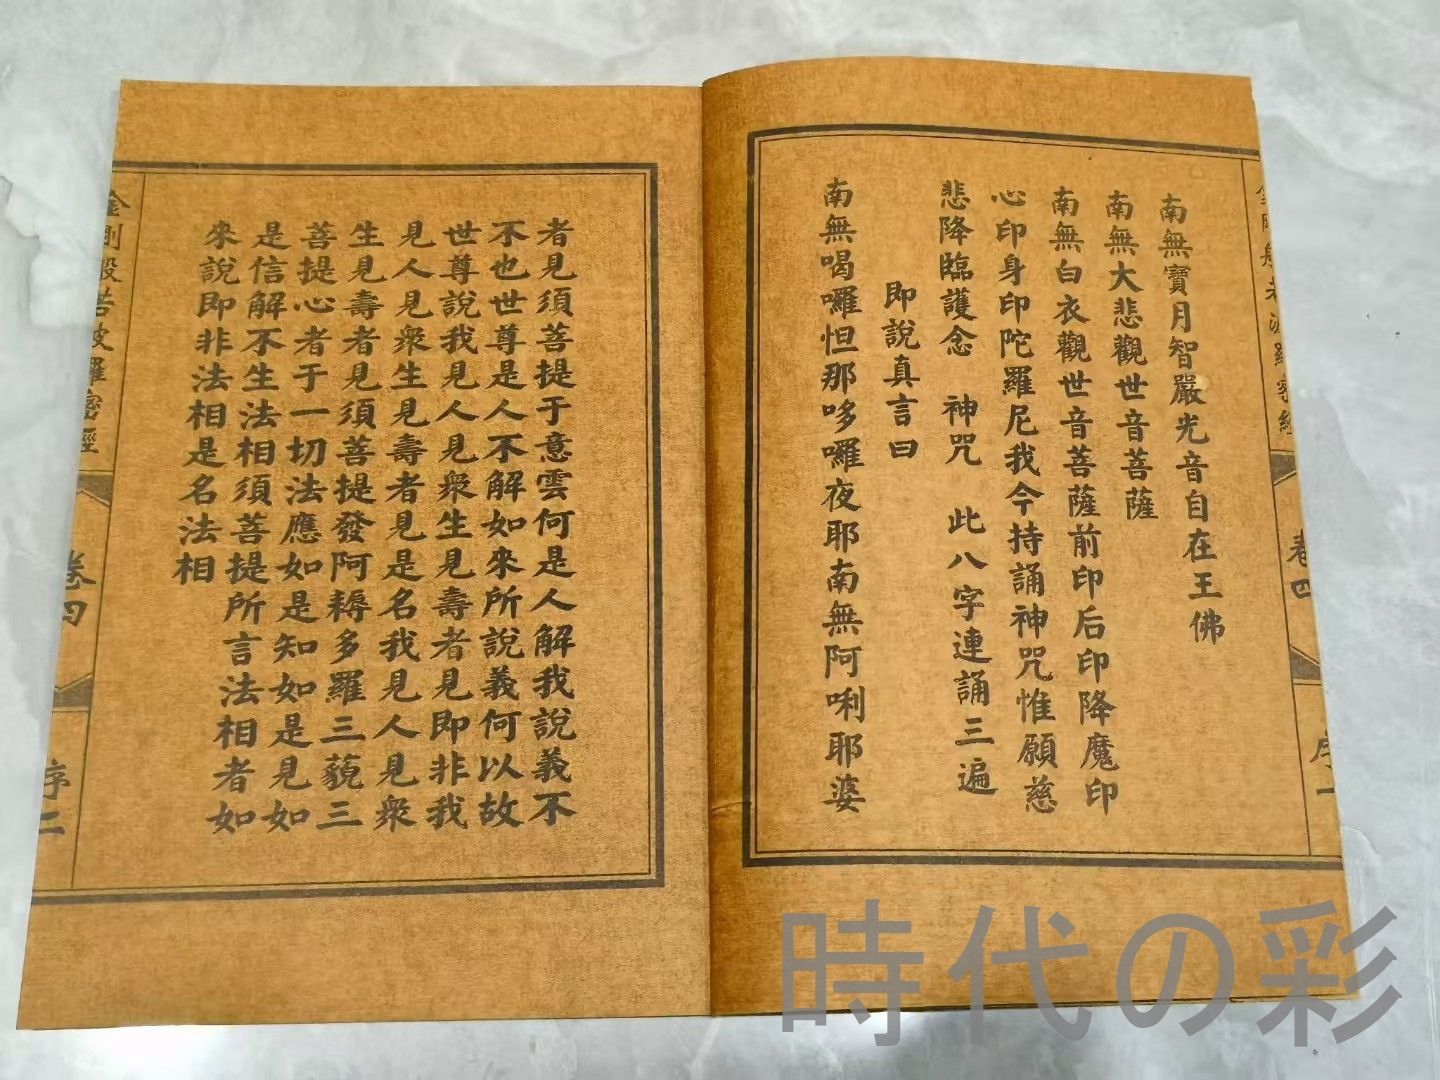 南無寶月智嚴光音自在王佛
南無大悲觀世音菩薩
南無白衣觀世音菩薩前印后印降魔印
心印身印陀羅尼我今持誦神咒惟願慈
悲降臨護念 神咒 此八字連誦三遍
即說真言曰
南無喝囉怛那哆囉夜耶南無阿唎耶婆
卷四
序一
者見須菩提于意雲何是人解我說義不
不也世尊是人不解如來所說義何以故
世尊說我見人見衆生見壽者見即非我
見人見衆生見壽者見是名我見人見衆
生見壽者見須菩提發阿耨多羅三藐三
菩提心者于一切法應如是知如是見如
是信解不生法相須菩提所言法相者如
來說即非法相是名法相
金剛般若波羅密經
卷四
序二
時代の彩